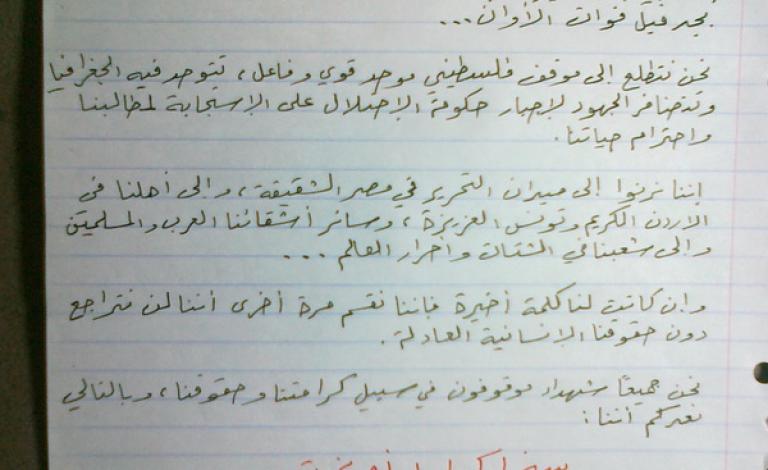 قبل فوات الأوان...
نحن نتطلع إلى موقف فلسطيني موحد قوي وفاعل، تتوحد فيه الجغرافيا
وتتضافر الجهود لإجبار حكومة الإحتلال على الإستجابة لمطالبنا
واحترام حياتنا.
إننا نرنوا إلى ميدان التحرير في مصر الشقيقة، وإلى أهلنا في
الأردن الكريم وتونس العزيزة، وسائر أشقائنا العرب والمسلمين
وإلى شعبنا في الشتات وأحرار العالم ...
وإن كانت لنا كلمة أخيرة فإننا نقسم مرة أخرى أننا لن نتراجع
دون حقوقنا الإنسانية العادلة.
نحن جميعًا شهداء موقوفون في سبيل كرامتنا وحقوقنا، وبالتالي
نعدكم أننا: